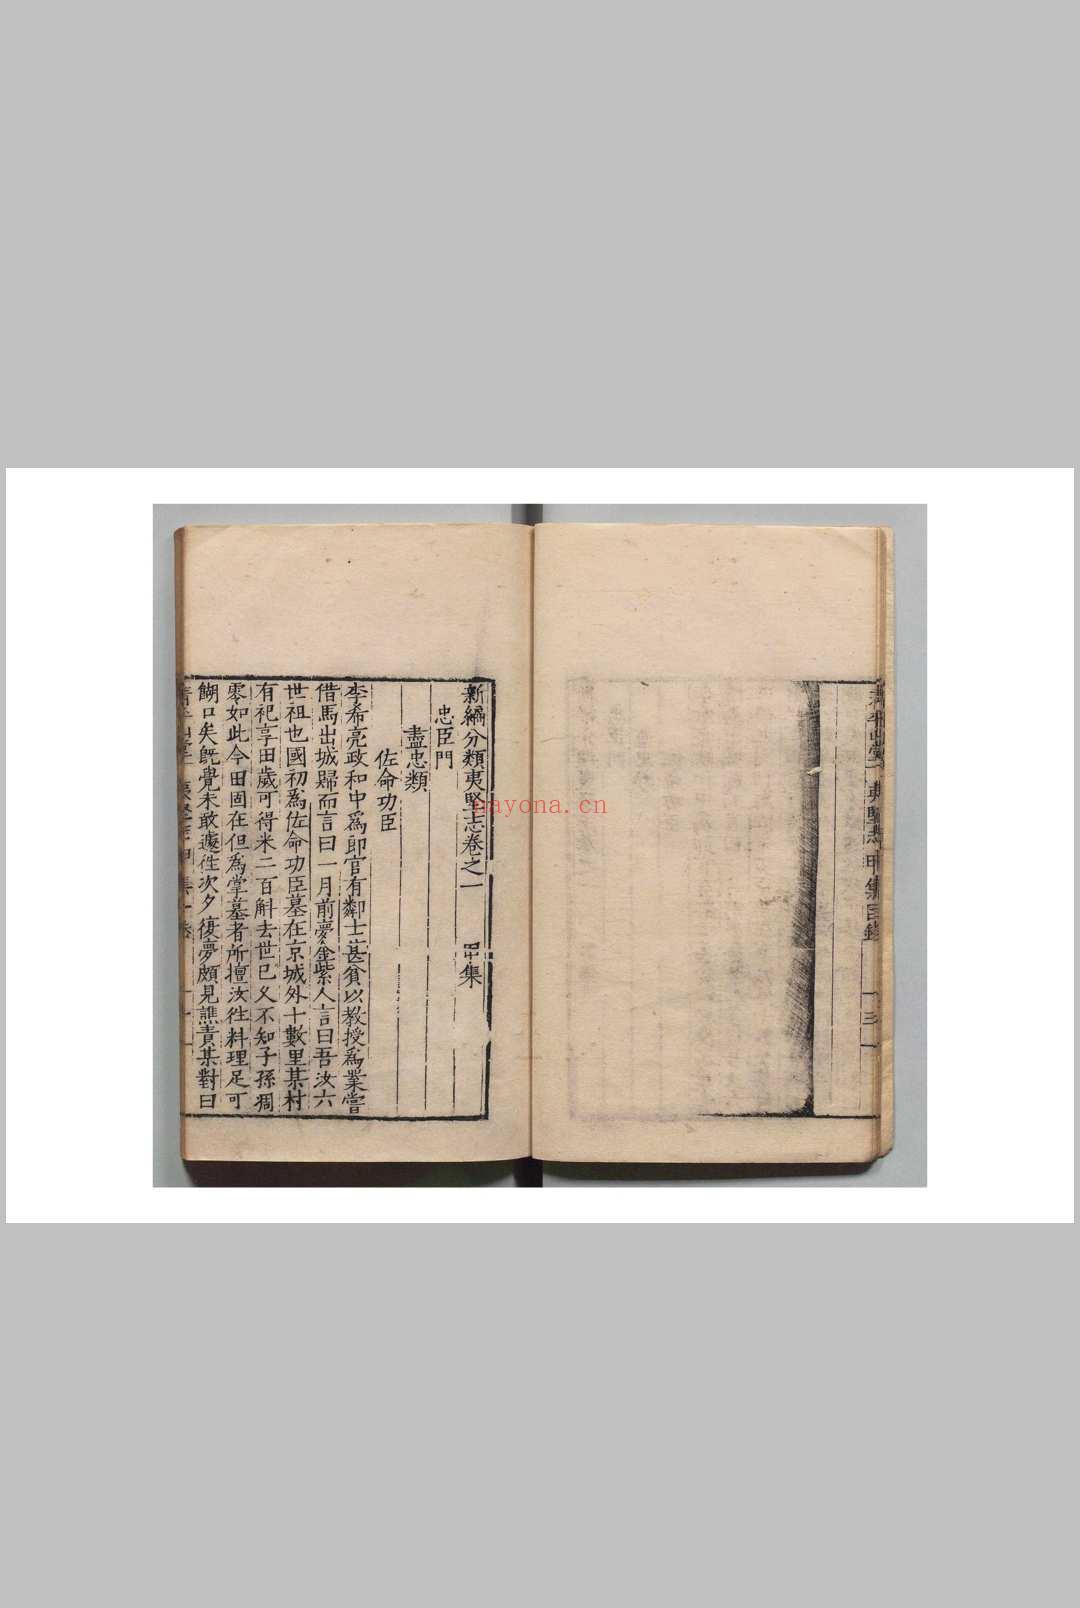 清平山堂 夷堅志甲集目錄 三
新編分類夷堅志卷之一 甲集
忠臣門
盡忠類
佐命功臣
李希亮政和中爲郎官有鄰士甚貧以教授爲業嘗
借馬出城歸而言曰一月前夢金紫人言曰吾汝六
世祖也國初爲佐命功臣墓在京城外十數里某村
有祀享田歲可得米二百斛去世已久不知子孫凋
零如此今田固在但爲掌墓者所擅汝往料理足可
餬口矣旣覺未敢遽往次夕復夢頗見譙責某對曰
nayona.cn